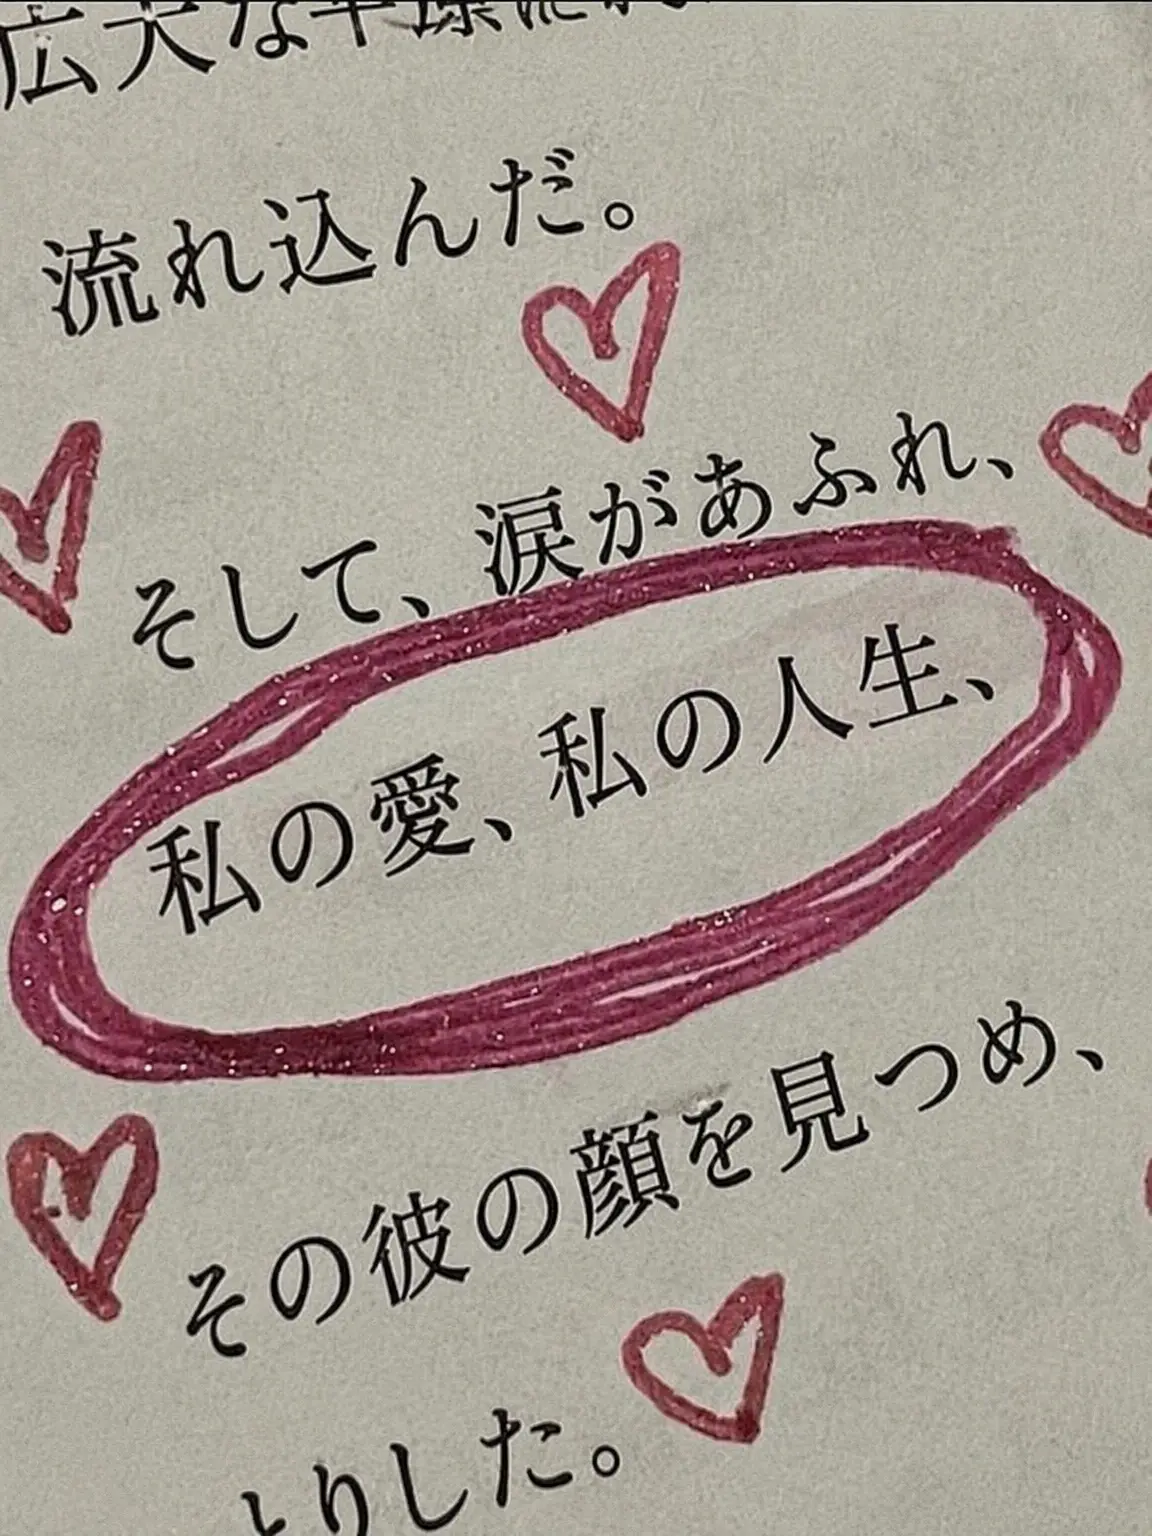 広大な
流れ込んだ。
そして、涙があふれ、
私の愛、私の人生、
その彼の顔を見つめ、
りした。